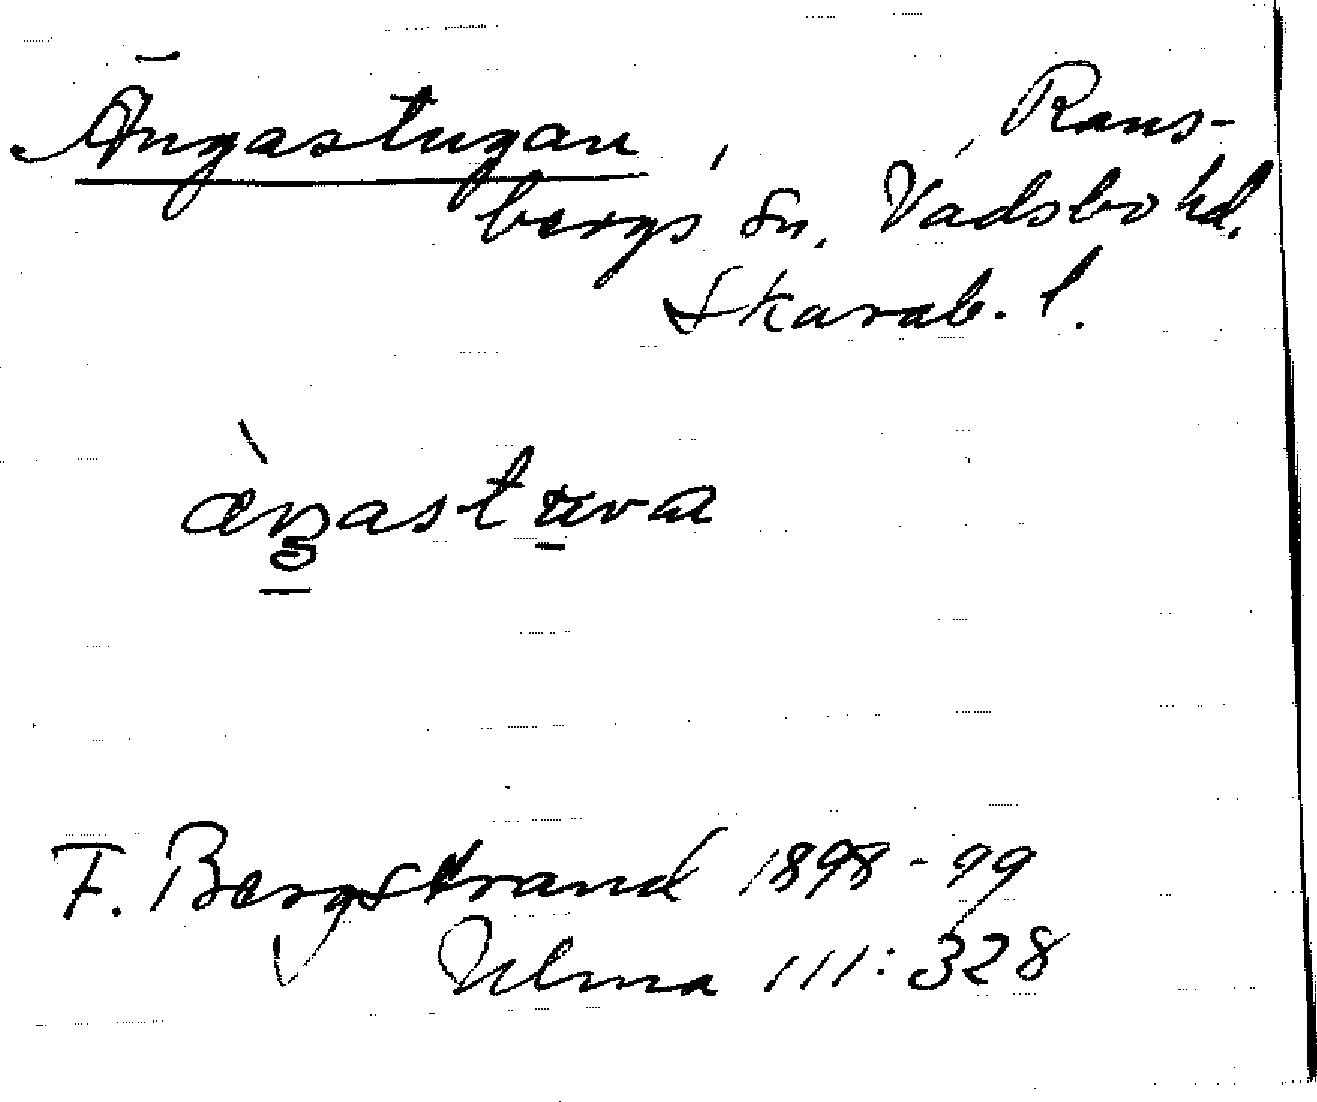 Ängastugan, Rans-
bergs sn. Vadsbo hd.
Skarab. l.
æ̀ŋastuva
F. Bergstrand 1898-99
Ulma 111:328